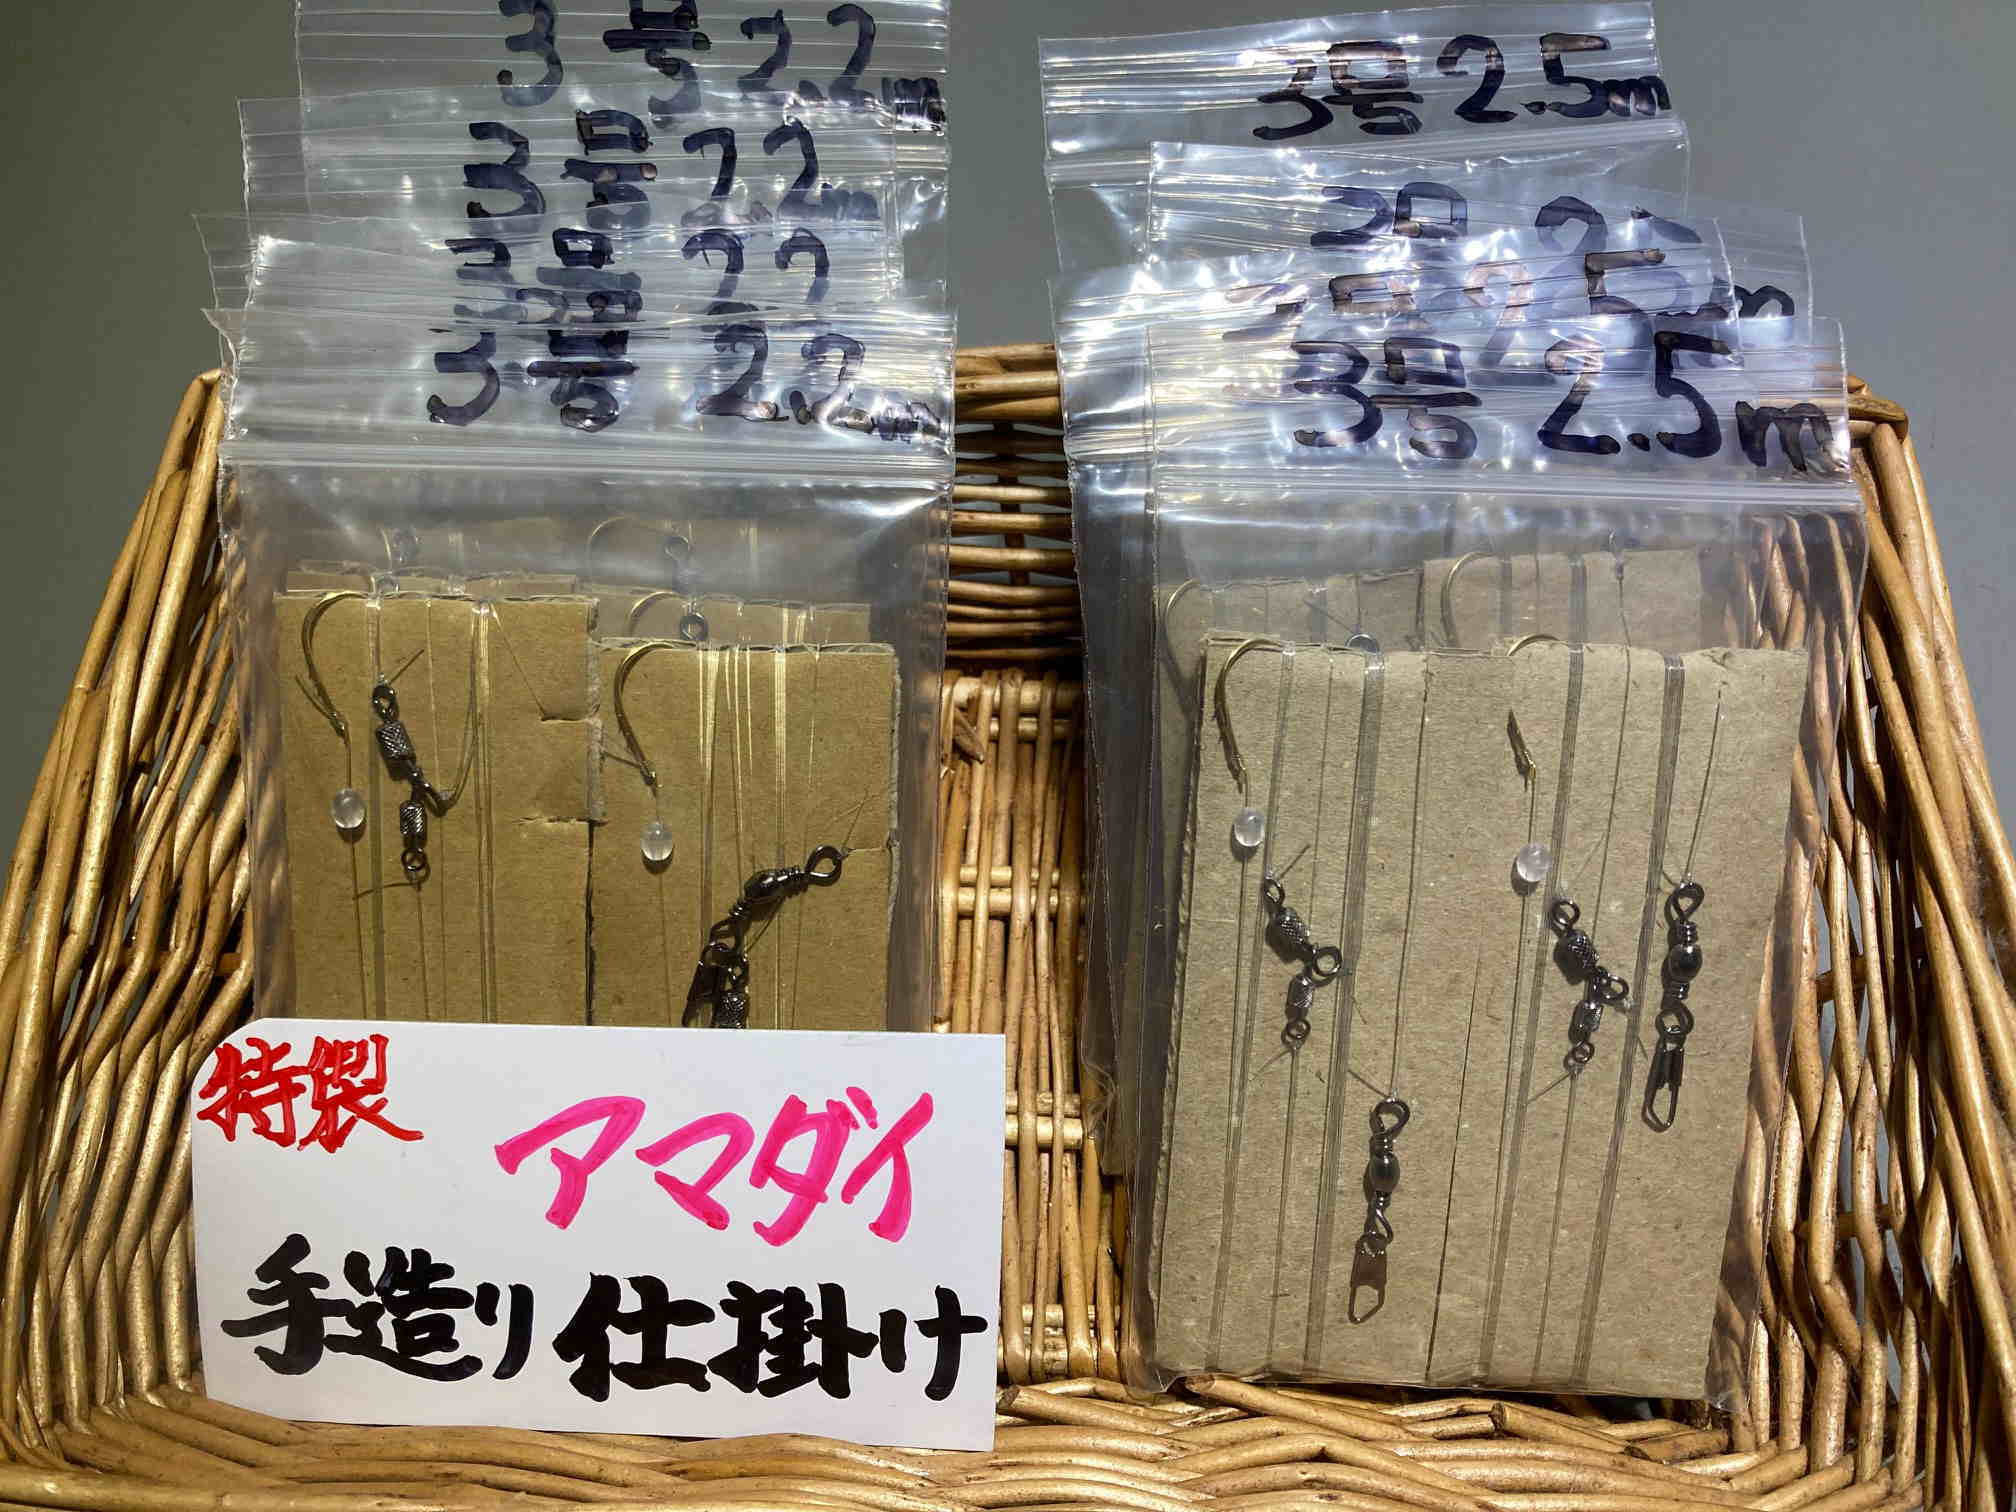 3号 2.2m
3号 2.2m
3号 2.2
3号 2.2m
3号 2.5m
3号 2.5m
3号 2.5m
特製
アマダイ
手造り仕掛け